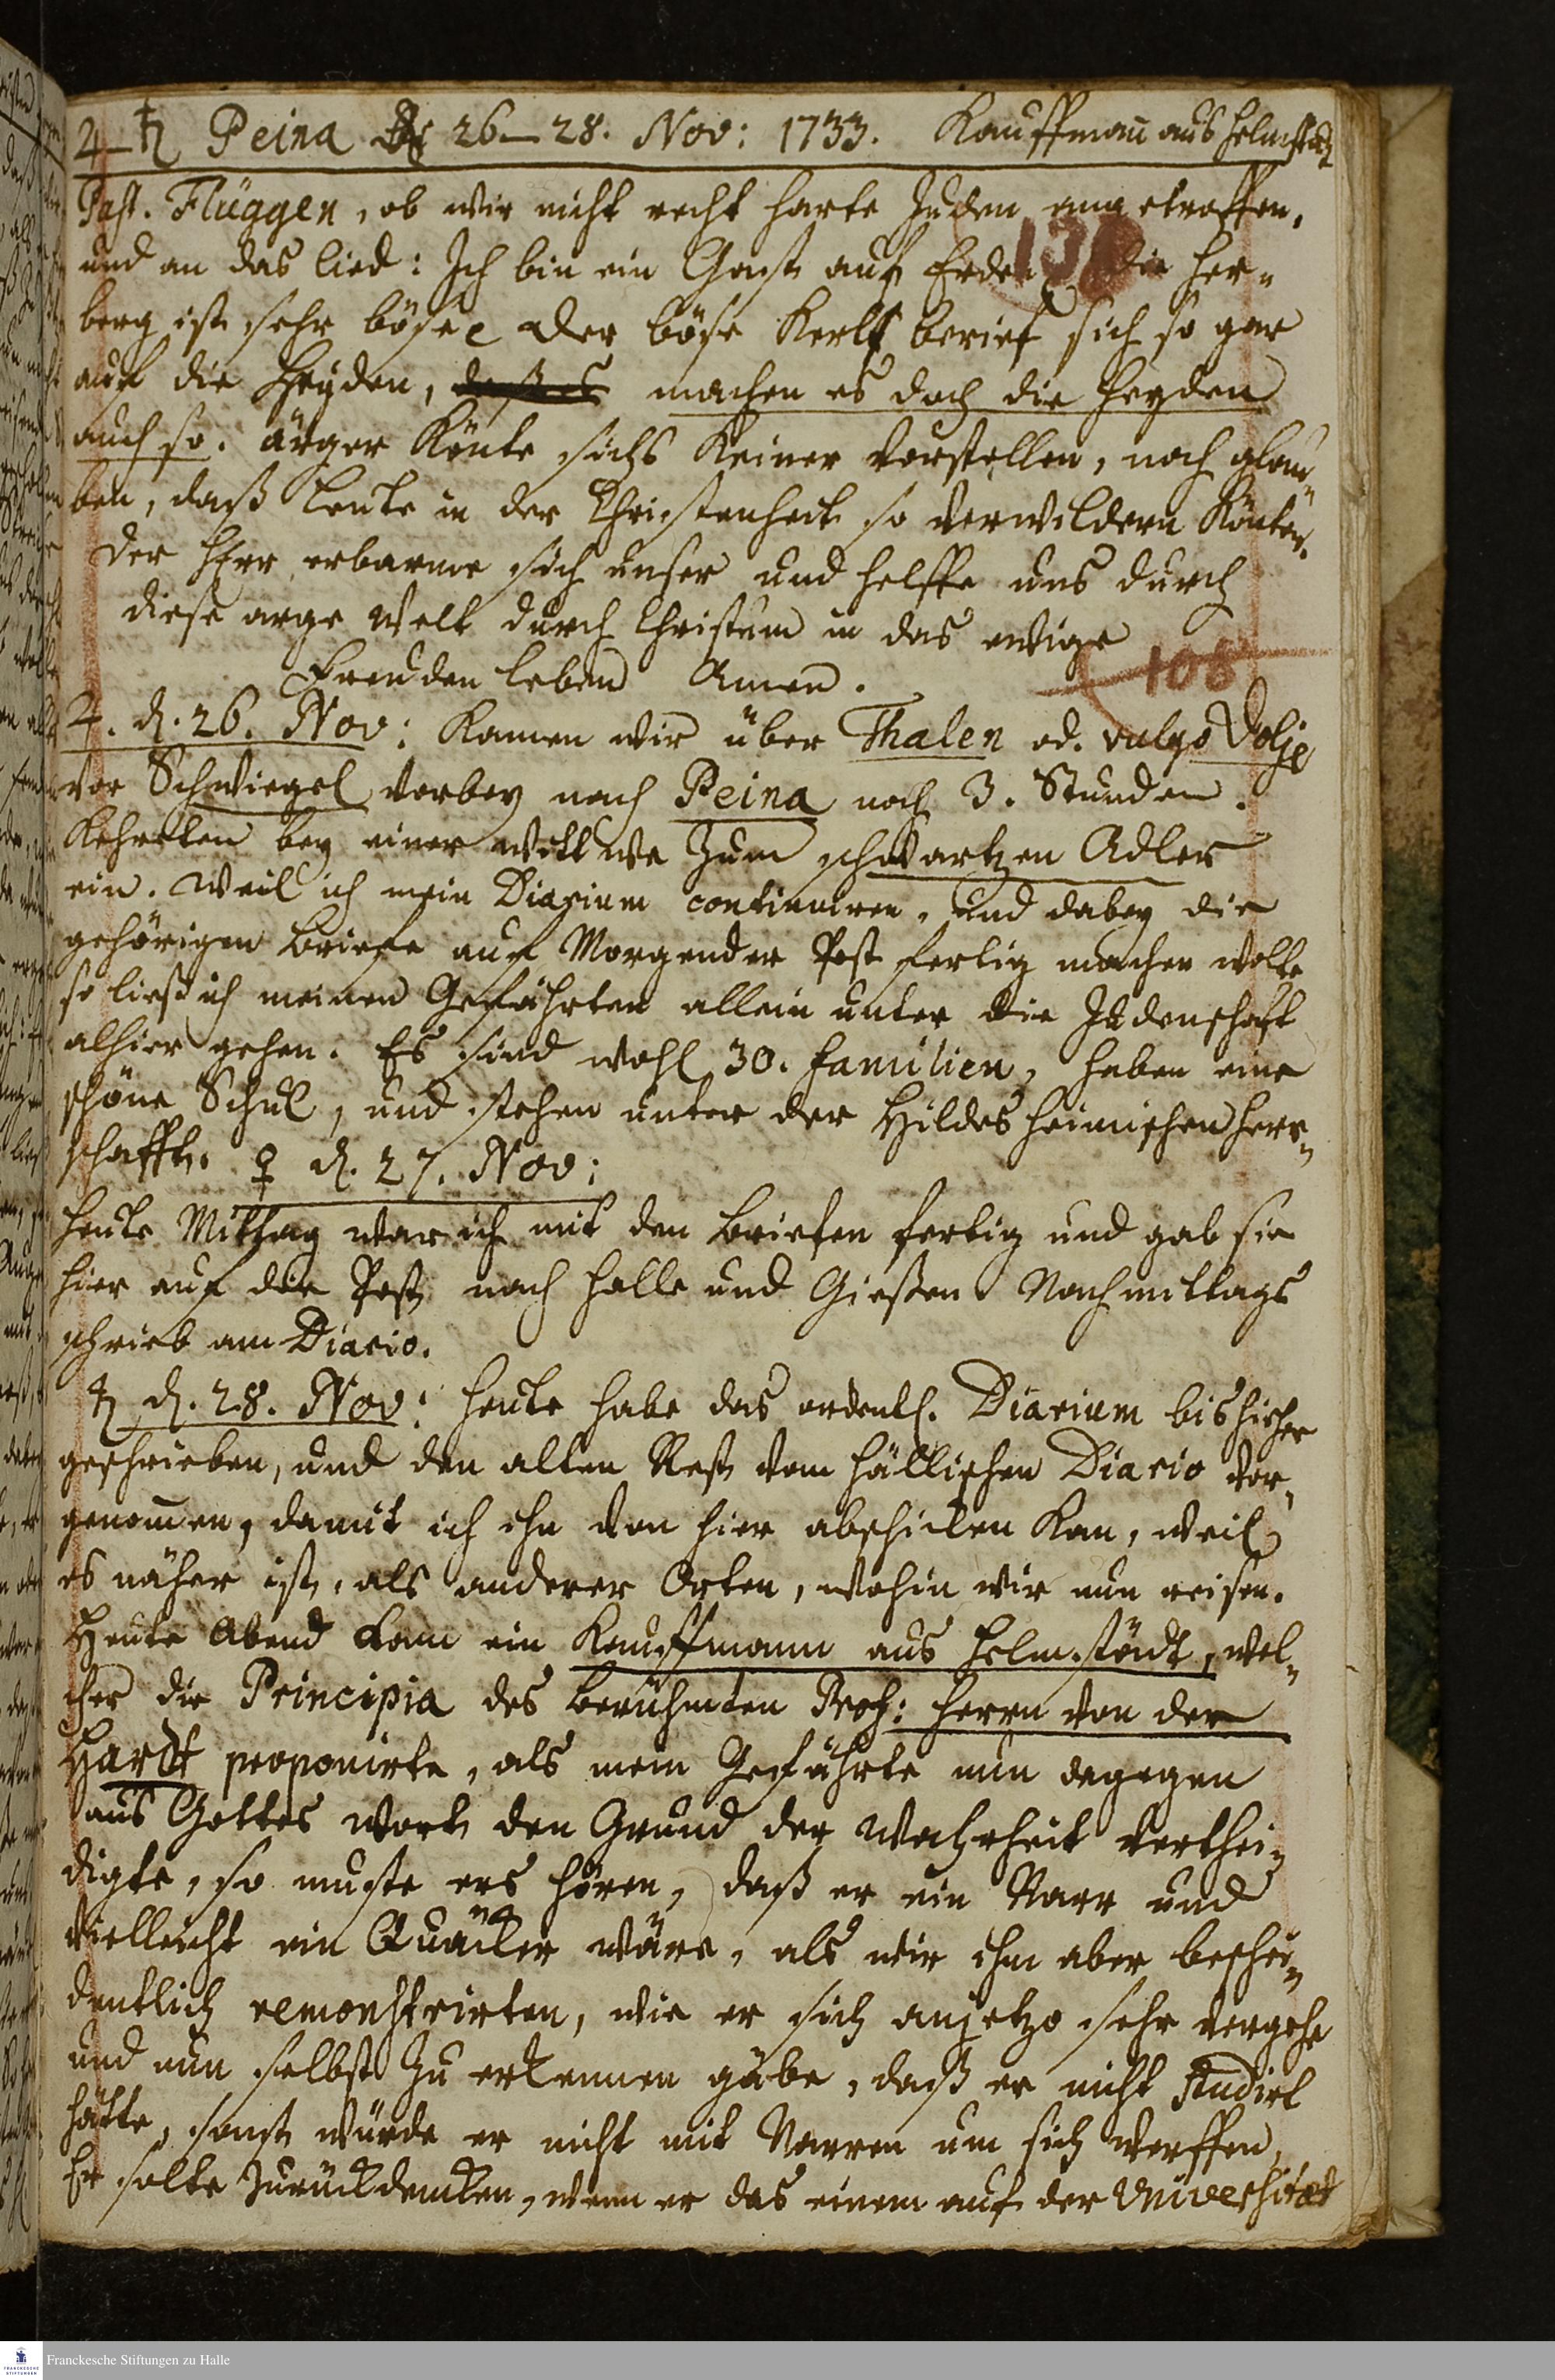 ♃–♄ Peina 26–28. Nov: 1733. Kauffmañ aus Helmstädt
Past. Flüggen, ob wir nicht recht harte Juden angetroffen,
und an das Lied: Ich bin ein Gast auf Erden die Her-
berg ist sehr böse der böse Kerls berief sich so gar
auf die Heyden, daß es machen es doch die Heyden
auch so. ärger könte sichs keiner vorstellen, noch glau-
ben, daß Leute in der Christenheit so verwildern könten.
Der Herr erbarme sich unser und helffe uns durch
diese arge Welt durch Christum in das ewige
Freuden Leben Amen.
138
108
♃. d. 26. Nov: Kamen wir über Thalen od. vulgo Dolje
vor Schwiegel vorbey nach Peina noch 3. Stunden.
Kehreten bey einer Wittwe zum schwartzen Adler
ein. Weil ich mein Diarium continuiren, und dabey die
gehörigen Briefe auf Morgender Post fertig machen wolte
so ließ ich meinen Gefährten allein unter die Judenschaft
alhier gehen. Es sind wohl 30. Familien, haben eine
schöne Schul, und stehen unter der Hildesheimischen Herr-
schafft. ♀ d. 27. Nov:
Heute Mittag war ich mit den Briefen fertig und gab sie
hier auf die Post nach Halle und Gießen Nachmittags
schrieb am Diario.
♄ d. 28. Nov: Heute habe das ordentl. Diarium bis hieher
geschrieben, und den alten Rest vom Hällischen Diario vor-
genom̃en, damit ich ihn von hier abschicken kan, weil
es näher ist, als anderer Orten, wohin wir nun reisen.
Heute Abend kam ein Kauffmann aus Helmstädt, wel-
cher die Principia des berühmten Prof: Herrn von der
Hardt proponirte, als mein Gefährte nun dagegen
aus Gottes Wort den Grund der Wahrheit verthei-
digte, so muste ers hören, daß er ein Narr und
vielleicht ein Quäcker wäre, als wir ihm aber beschei-
dentlich remonstrirten, wie er sich anjetzo sehr vergehe
und nun selbst zu erkennen gäbe, daß er nicht studirt
hätte, sonst würde er nicht mit Narren um sich werffen,
Er solte zurückdencken, wenn er das einem auf der Universitæt
Franckesche Stiftungen zu Halle